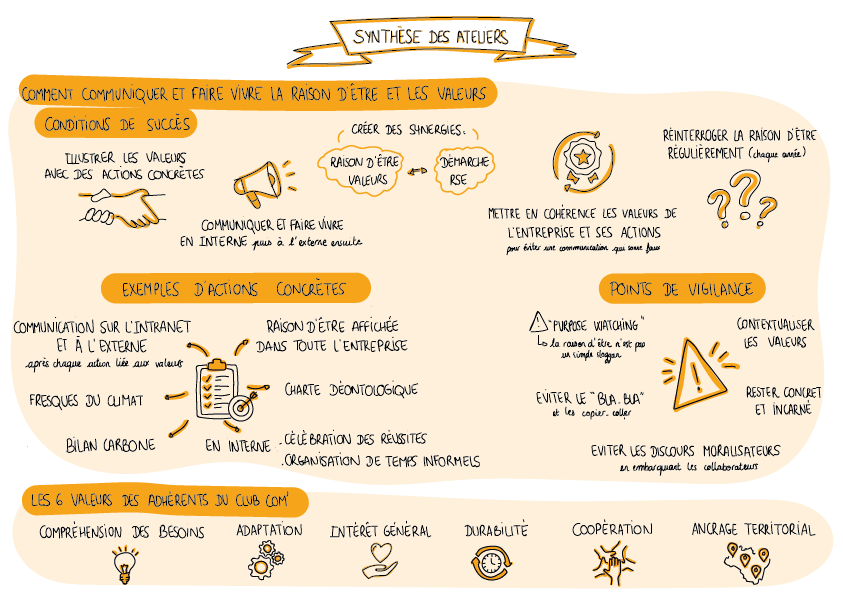 SYNTHÈSE DES ATELIERS
COMMENT COMMUNIQUER ET FAIRE VIVRE LA RAISON D'ÊTRE ET LES VALEURS
CONDITIONS DE SUCCÈS
ILLUSTRER LES VALEURS
AVEC DES ACTIONS CONCRÈTES
COMMUNIQUER ET FAIRE VIVRE
EN INTERNE puis à l'externe ensuite
CRÉER DES SYNERGIES:
RAISON D'ÊTRE
VALEURS
DÉMARCHE
RSE
METTRE EN COHÉRENCE LES VALEURS DE
L'ENTREPRISE ET SES ACTIONS
pour éviter une communication qui sonne faux
RÉINTERROGER LA RAISON D'ÊTRE
RÉGULIÈREMENT (chaque année)
EXEMPLES D'ACTIONS CONCRÈTES
COMMUNICATION SUR L'INTRANET
ET À L'EXTERNE
après chaque action liée aux valeurs
FRESQUES DU CLIMAT
BILAN CARBONE
RAISON D'ÊTRE AFFICHÉE
DANS TOUTE L'ENTREPRISE
CHARTE DÉONTOLOGIQUE
EN INTERNE
. CÉLÉBRATION DES RÉUSSITES
. ORGANISATION DE TEMPS INFORMELS
POINTS DE VIGILANCE
"PURPOSE WATCHING"
la raison d'être n'est pas
un simple sloggan
EVITER LE "BLA-BLA"
et les copier-coller
CONTEXTUALISER
LES VALEURS
RESTER CONCRET
ET INCARNÉ
EVITER LES DISCOURS MORALISATEURS
en embarquant les collaborateurs
LES 6 VALEURS DES ADHÉRENTS DU CLUB COM'
COMPRÉHENSION DES BESOINS
ADAPTATION
INTÉRÊT GÉNÉRAL
DURABILITÉ
COOPÉRATION
ANCRAGE TERRITORIAL